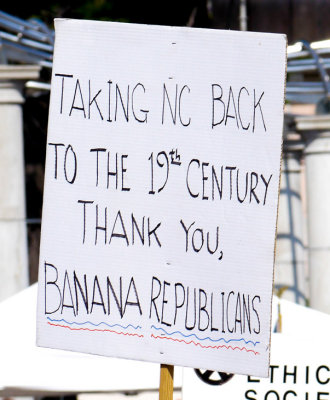 TAKING NC BACK
TO THE 19th CENTURY
THANK YOU,
BANANA REPUBLICANS
ETHIC
SOCIE